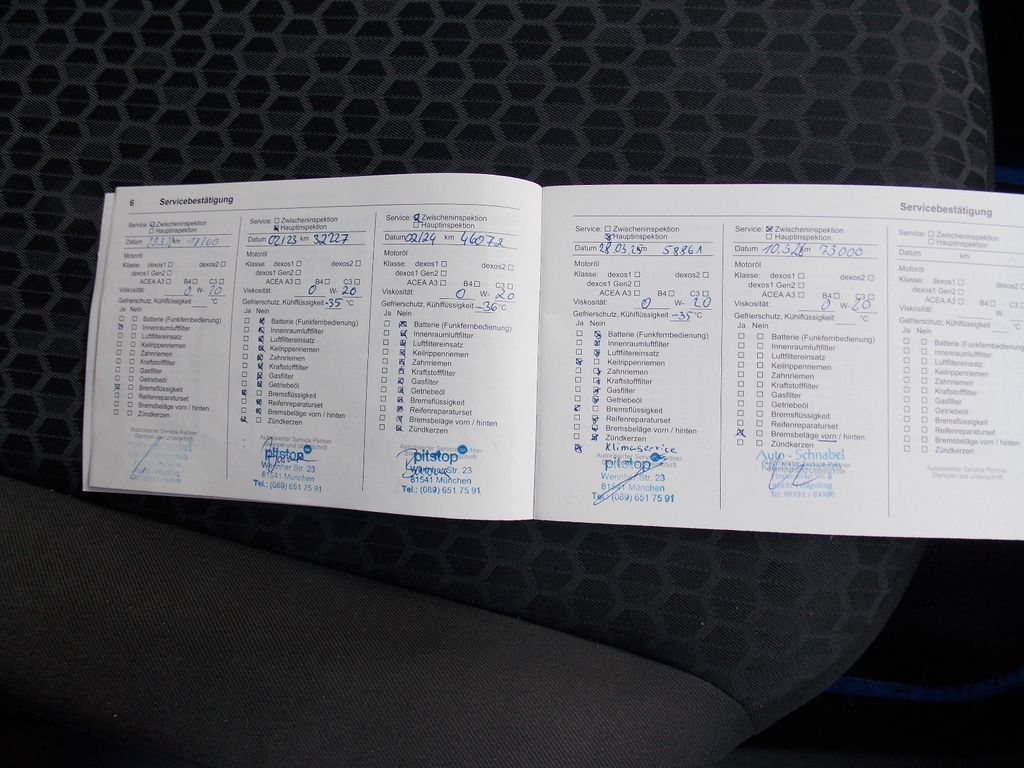 6 Servicebestätigung
Service: Zwischeninspektion
Hauptinspektion
Datum km 18200
Motoröl
Klasse: dexos1 dexos2
dexos1 Gen2
ACEA A3 B4 C3
Viskosität: 0 W- 20
Gefrierschutz, Kühlflüssigkeit °C
Ja Nein
Batterie (Funkfernbedienung)
Innenraumluftfilter
Luftfiltereinsatz
Keilrippenriemen
Zahnriemen
Kraftstofffilter
Gasfilter
Getriebeöl
Bremsflüssigkeit
Reifenreparaturset
Bremsbeläge vorn / hinten
Zündkerzen
Autorisierter Service Partner
Stempel und Unterschrift
Service: Zwischeninspektion
Hauptinspektion
Datum 02/23 km 32227
Motoröl
Klasse: dexos1 dexos2
dexos1 Gen2
ACEA A3 B4 C3
Viskosität: 0 W- 20
Gefrierschutz, Kühlflüssigkeit -35 °C
Ja Nein
Batterie (Funkfernbedienung)
Innenraumluftfilter
Luftfiltereinsatz
Keilrippenriemen
Zahnriemen
Kraftstofffilter
Gasfilter
Getriebeöl
Bremsflüssigkeit
Reifenreparaturset
Bremsbeläge vorn / hinten
Zündkerzen
Autorisierter Service Partner
pitstop
Werinher Str. 23
81541 München
Tel.: (089) 651 75 91
Service: Zwischeninspektion
Hauptinspektion
Datum 02/24 km 46072
Motoröl
Klasse: dexos1 dexos2
dexos1 Gen2
ACEA A3 B4 C3
Viskosität: 0 W- 20
Gefrierschutz, Kühlflüssigkeit -36 °C
Ja Nein
Batterie (Funkfernbedienung)
Innenraumluftfilter
Luftfiltereinsatz
Keilrippenriemen
Zahnriemen
Kraftstofffilter
Gasfilter
Getriebeöl
Bremsflüssigkeit
Reifenreparaturset
Bremsbeläge vorn / hinten
Zündkerzen
Autorisierter Service Partner
pitstop
Werinher Str. 23
81541 München
Tel.: (089) 651 75 91
Servicebestätigung
Service: Zwischeninspektion
Hauptinspektion
Datum 28.03.25 km 58861
Motoröl
Klasse: dexos1 dexos2
dexos1 Gen2
ACEA A3 B4 C3
Viskosität: 0 W- 20
Gefrierschutz, Kühlflüssigkeit -35 °C
Ja Nein
Batterie (Funkfernbedienung)
Innenraumluftfilter
Luftfiltereinsatz
Keilrippenriemen
Zahnriemen
Kraftstofffilter
Gasfilter
Getriebeöl
Bremsflüssigkeit
Reifenreparaturset
Bremsbeläge vorn / hinten
Zündkerzen
Klimaservice
pitstop
Werinher Str. 23
81541 München
Tel.: (089) 651 75 91
Service: Zwischeninspektion
Hauptinspektion
Datum 10.3.26 km 73000
Motoröl
Klasse: dexos1 dexos2
dexos1 Gen2
ACEA A3 B4 C3
Viskosität: 0 W- 20
Gefrierschutz, Kühlflüssigkeit °C
Ja Nein
Batterie (Funkfernbedienung)
Innenraumluftfilter
Luftfiltereinsatz
Keilrippenriemen
Zahnriemen
Kraftstofffilter
Gasfilter
Getriebeöl
Bremsflüssigkeit
Reifenreparaturset
Bremsbeläge vorn / hinten
Zündkerzen
Auto - Schnabel
Service: Zwischeninspektion
Hauptinspektion
Datum km
Motoröl
Klasse: dexos1 dexos2
dexos1 Gen2
ACEA A3 B4 C3
Viskosität: W-
Gefrierschutz, Kühlflüssigkeit °C
Ja Nein
Batterie (Funkfernbedienung)
Innenraumluftfilter
Luftfiltereinsatz
Keilrippenriemen
Zahnriemen
Kraftstofffilter
Gasfilter
Getriebeöl
Bremsflüssigkeit
Reifenreparaturset
Bremsbeläge vorn / hinten
Zündkerzen
Autorisierter Service Partner
Stempel und Unterschrift